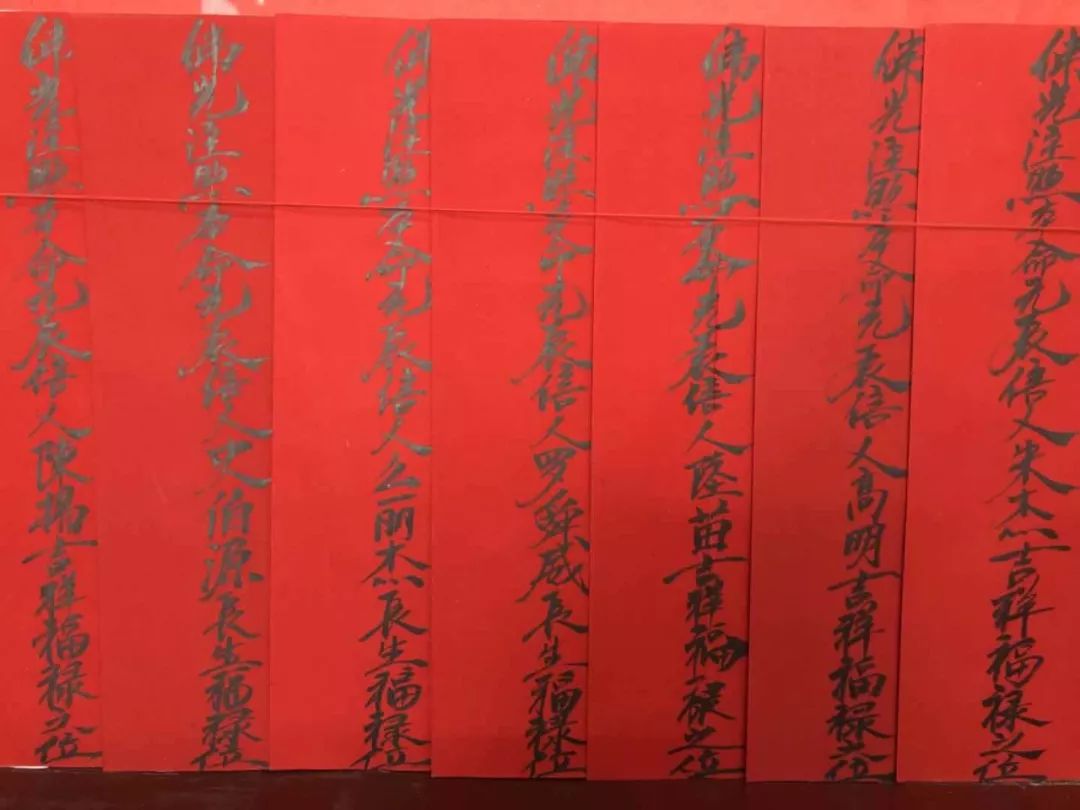 佛光注照本命元辰信人朱杰吉祥福禄之位
佛光注照本命元辰信人高明吉祥福禄之位
佛光注照本命元辰信人陸苗吉祥福禄之位
佛光注照本命元辰信人罗 威長生福禄位
佛光注照本命元辰信人 丽杰長生福禄位
佛光注照本命元辰信人史伯源長生福禄位
佛光注照本命元辰信人陳揚吉祥福禄之位